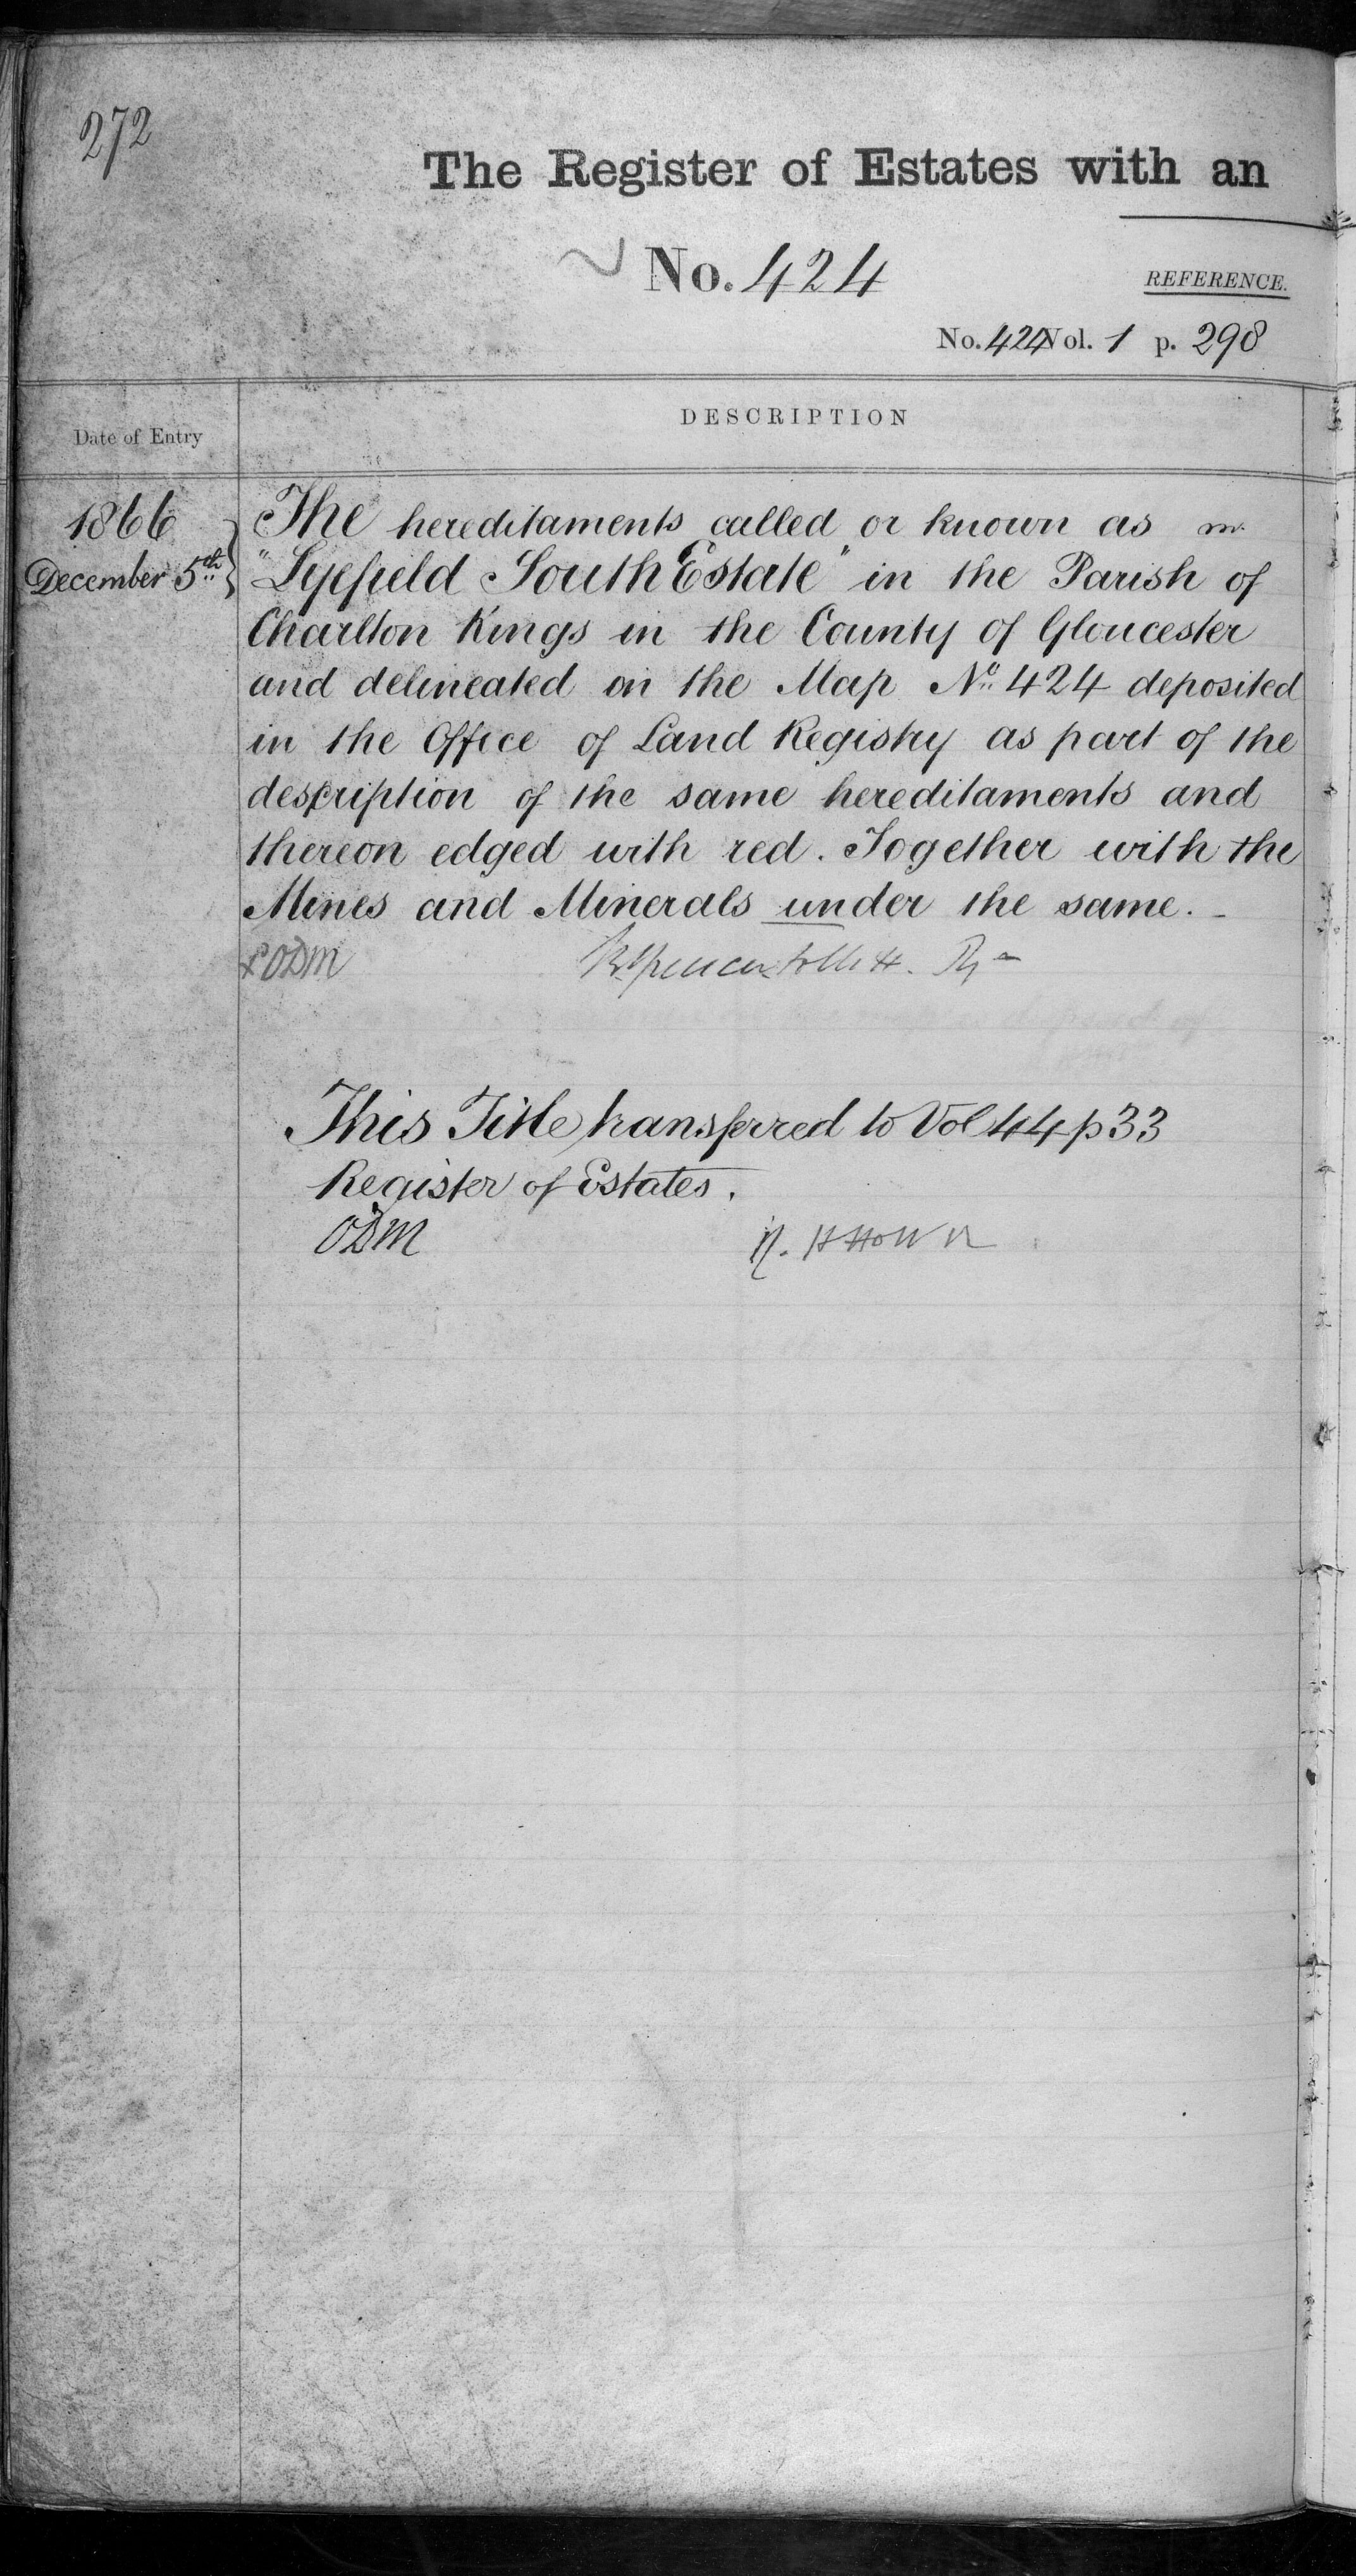 272
The Register of Estates with an
No. 424
REFERENCE.
No. 424 Vol. 1 p. 298
Date of Entry
DESCRIPTION
1866
December 5th
The hereditaments called or known as
"Lyefield South Estate" in the Parish of
Charlton Kings in the County of Gloucester
and delineated on the Map No. 424 deposited
in the Office of Land Registry as part of the
description of the same hereditaments and
thereon edged with red. Together with the
Mines and Minerals under the same.
ODM
This Title transferred to Vol 44 p 33
Register of Estates.
ODM